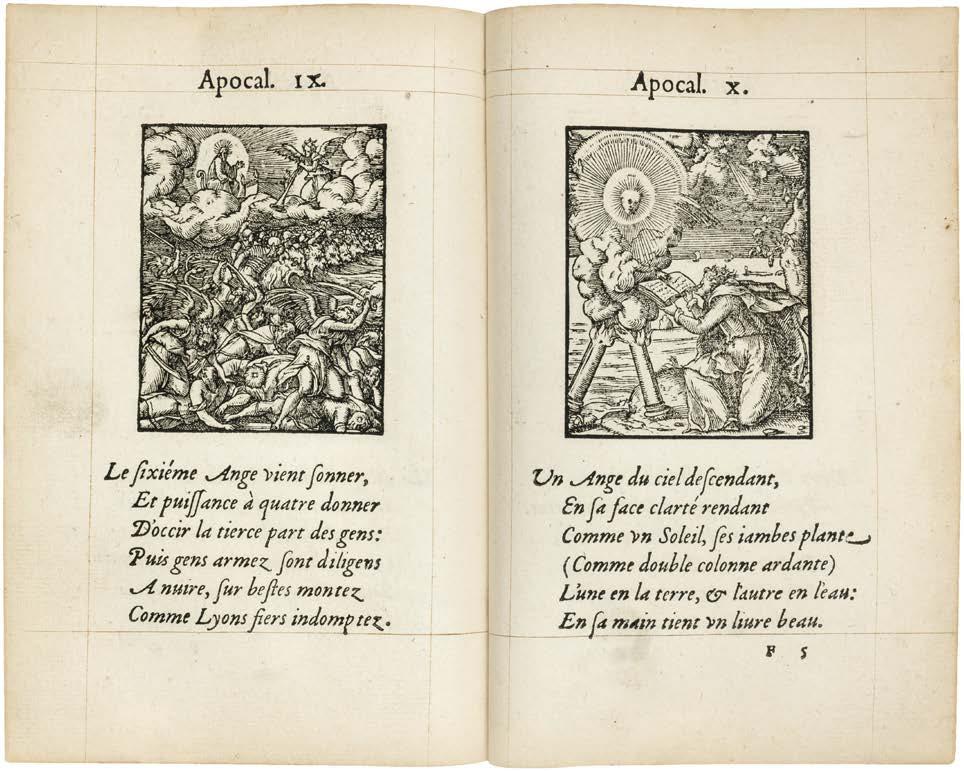 Apocal. IX.
Le ſixiéme Ange vient ſonner,
Et puiſſance à quatre donner
D'occir la tierce part des gens:
Puis gens armez ſont diligens
A nuire, ſur beſtes montez
Comme Lyons fiers indomptez.
Apocal. X.
Un Ange du ciel deſcendant,
En ſa face clarté rendant
Comme vn Soleil, ſes iambes plante
(Comme double colonne ardante)
L'une en la terre, & l'autre en l'eau:
En ſa main tient vn liure beau.
F 5